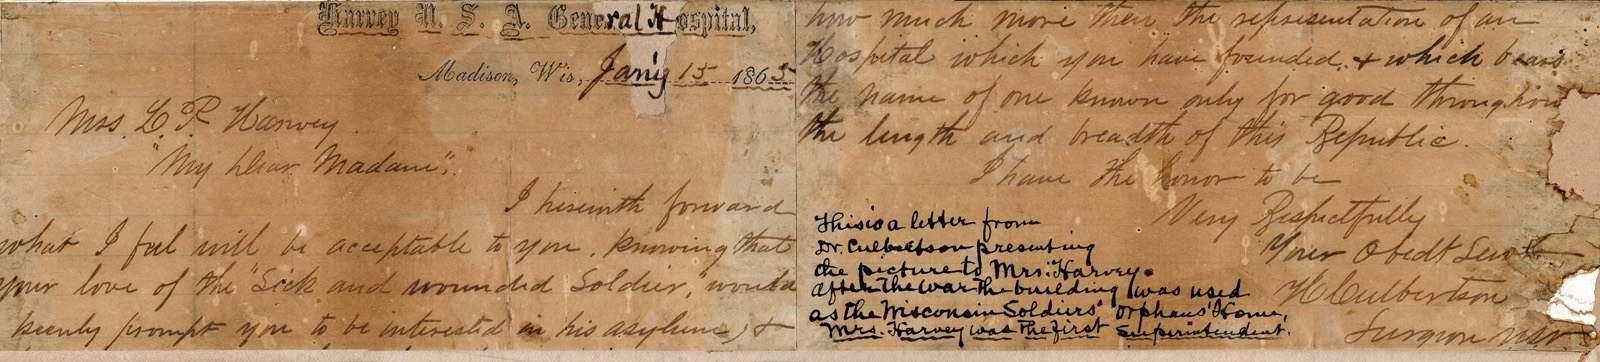 Harvey U. S. A. General Hospital,
Madison, Wis, Jan'y 15 1865
Mrs. L. P. Harvey.
"My Dear Madam",.
I herewith forward
what I feel will be acceptable to you, knowing that
your love of the "Sick and wounded Soldier", would
keenly prompt you to be interested in his asylum, &
how much more then the representation of an
Hospital which you have founded, & which bears
the name of one known only for good throughout
the length and breadth of this Republic.
I have the honor to be
Very Respectfully
Your Obedt Servt
H Culbertson
Surgeon USV
This is a letter from
Dr. Culbertson presenting
the picture to Mrs. Harvey.
After the war the building was used
as the Wisconsin Soldiers' Orphans' Home,
Mrs. Harvey was the first Superintendent.